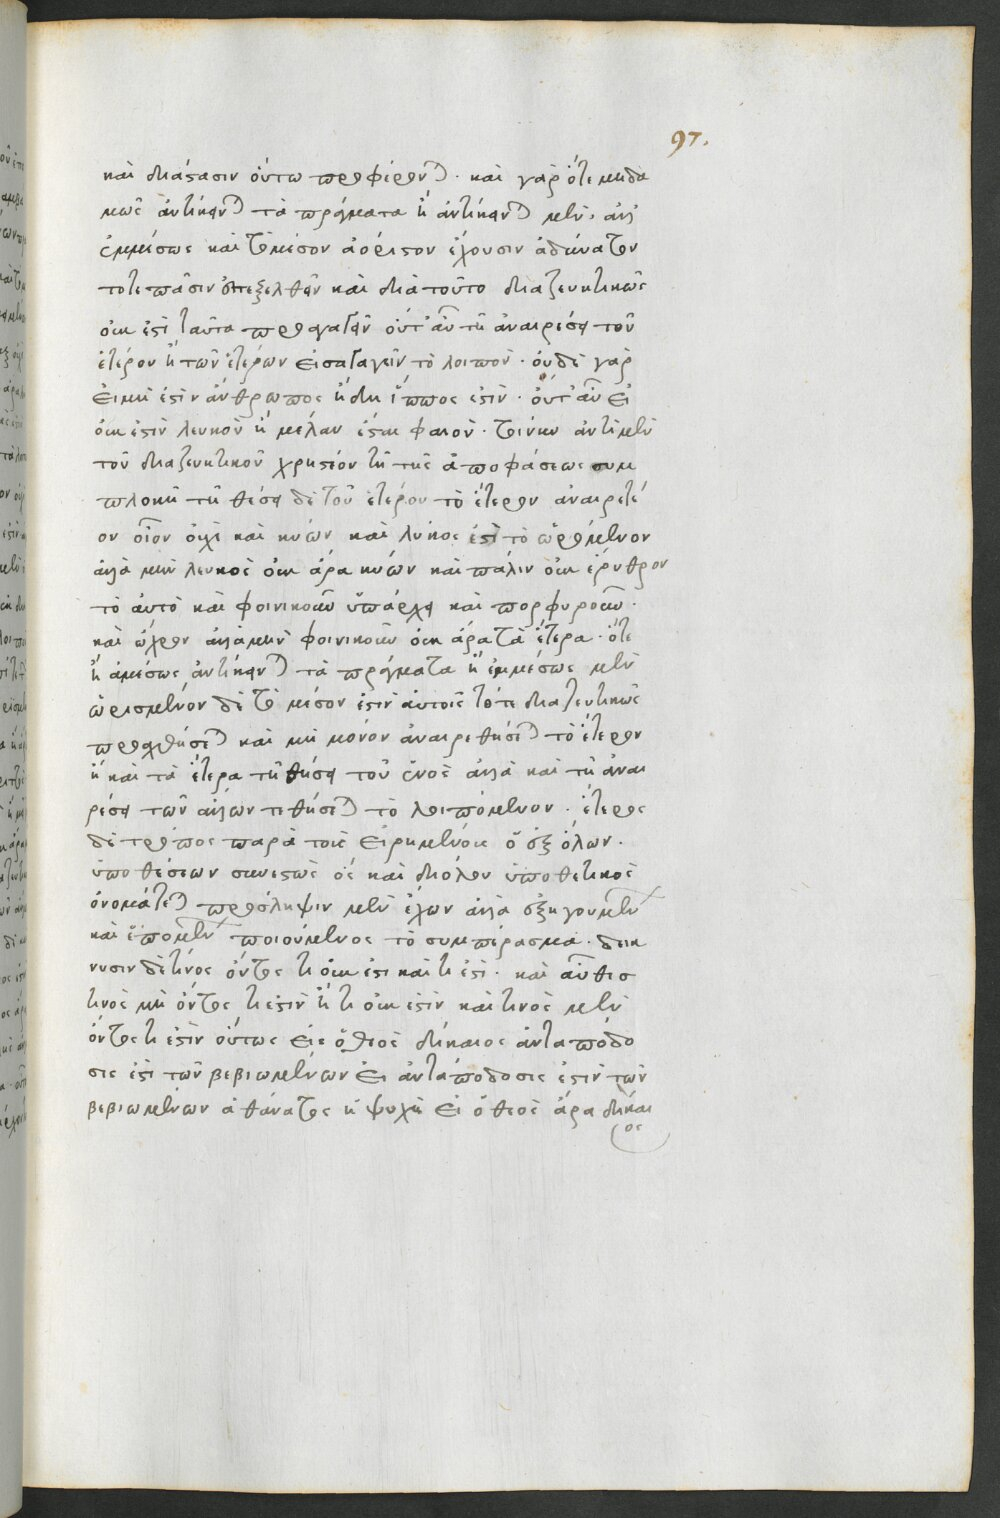 97.
καὶ διάστασιν οὕτω προφέρονται. καὶ γὰρ ὅτε μηδα
μῶς ἀντίκειται τὰ πράγματα ἢ ἀντίκειται μὲν, ἀλλ'
ἐμμέσως καὶ τὸ μέσον ἀόριστον ἔχουσιν ἀδύνατον
τότε πᾶσιν ἐπεξελθεῖν καὶ διὰ τοῦτο διαζευκτικῶς
οὐκ ἔστι ταῦτα προαγαγεῖν οὔτ' αὖ τῇ ἀναιρέσει τοῦ
ἑτέρου ἢ τῶν ἑτέρων εἰσαγαγεῖν τὸ λοιπόν. οὐδὲ γὰρ
εἰ μή ἐστιν ἄνθρωπος ἤδη ἵππος ἐστίν. οὔτ' αὖ εἰ
οὐκ ἔστιν λευκὸν ἢ μέλαν ἔσται φαιόν. τοίνυν ἀντὶ μὲν
τοῦ διαζευκτικοῦ χρηστέον τῇ τῆς ἀποφάσεως συμ
πλοκῇ τῇ θέσει δὲ τοῦ ἑτέρου τὸ ἕτερον ἀναιρετέ
ον οἷον οὐχὶ καὶ κύων καὶ λύκος ἐστὶ τὸ ὁρώμενον
ἀλλὰ μὴν λευκὸς οὐκ ἄρα κύων καὶ πάλιν οὐκ ἐρυθρὸν
τὸ αὐτὸ καὶ φοινικοῦν ὑπάρχει καὶ πορφυροῦν.
καὶ ὠχρὸν ἀλλὰ μὴν φοινικοῦν οὐκ ἄρα τὰ ἕτερα. ὅτε
ἢ ἀμέσως ἀντίκειται τὰ πράγματα ἢ ἐμμέσως μὲν
ὡρισμένον δὲ τὸ μέσον ἐστὶν αὐτοῖς τότε διαζευκτικῶς
προαχθήσεται καὶ μὴ μόνον ἀναιρεθήσεται τὸ ἕτερον
ἢ καὶ τὰ ἕτερα τῇ θέσει τοῦ ἑνὸς ἀλλὰ καὶ τῇ ἀναι
ρέσει τῶν ἄλλων τεθήσεται τὸ λειπόμενον. ἕτερος
δὲ τρόπος παρὰ τοῖς εἰρημένοις ὁ ἐξ ὅλων.
ὑποθέσεων συνεστὼς ὃς καὶ διόλου ὑποθετικὸς
ὀνομάζεται πρόσληψιν μὲν ἔχων ἀλλὰ ἐξ ἡγουμένου
καὶ ἑπομένου ποιούμενος τὸ συμπέρασμα. δείκ
νυσιν δὲ τίνος ὄντος τι οὐκ ἔστι καὶ τι ἐστί. καὶ αὖθις
τίνος μὴ ὄντος τί ἐστιν ἢ τί οὐκ ἔστιν καὶ τίνος μὲν
ὄντος τι ἐστὶν οὕτως εἰς ὁ θεὸς δίκαιος ἀνταπόδο
σις ἐστὶ τῶν βεβιωμένων εἰ ἀνταπόδοσις ἐστὶν τῶν
βεβιωμένων ἀθάνατος ἡ ψυχὴ εἰ ὁ θεὸς ἄρα δίκαι
ος